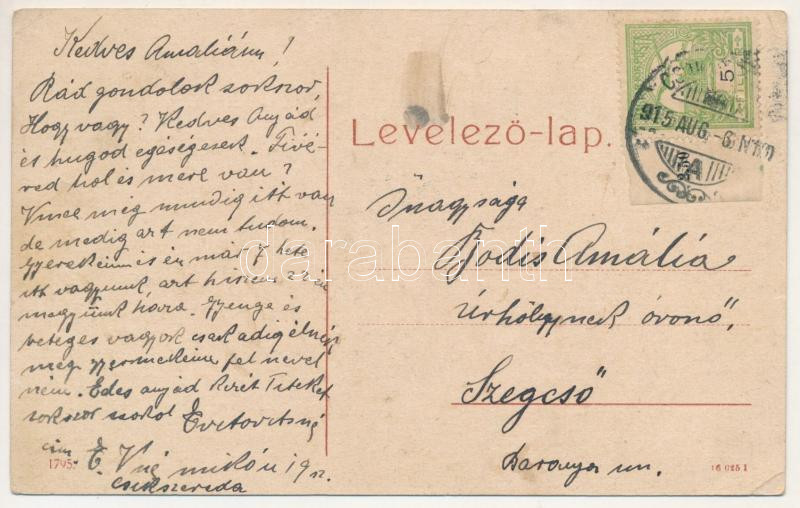 Kedves Amáliám!
Rád gondolok sokszor,
Hogy vagy? Kedves Anyád
és hugod egeségesek. Fivé-
red hol és merre van?
még mindig itt van
de meddig azt nem tudom.
Gyerekeim is én már 7 hete
itt vagyunk, azt hiszem
megyünk haza. Gyenge és
beteges vagyok csak adig élnék
még gyermekeim fel nevel
ném. Édes anyád kezét Titeket
sokszor csókol
cim. E.
Csikszereda
1795.
Levelező-lap.
915 AUG. -6. N10
A
Önagysága
Bodis Amália
Úrhölgynek óvonő,
Szegcső
Baranya m.
16 025 1
darabanth